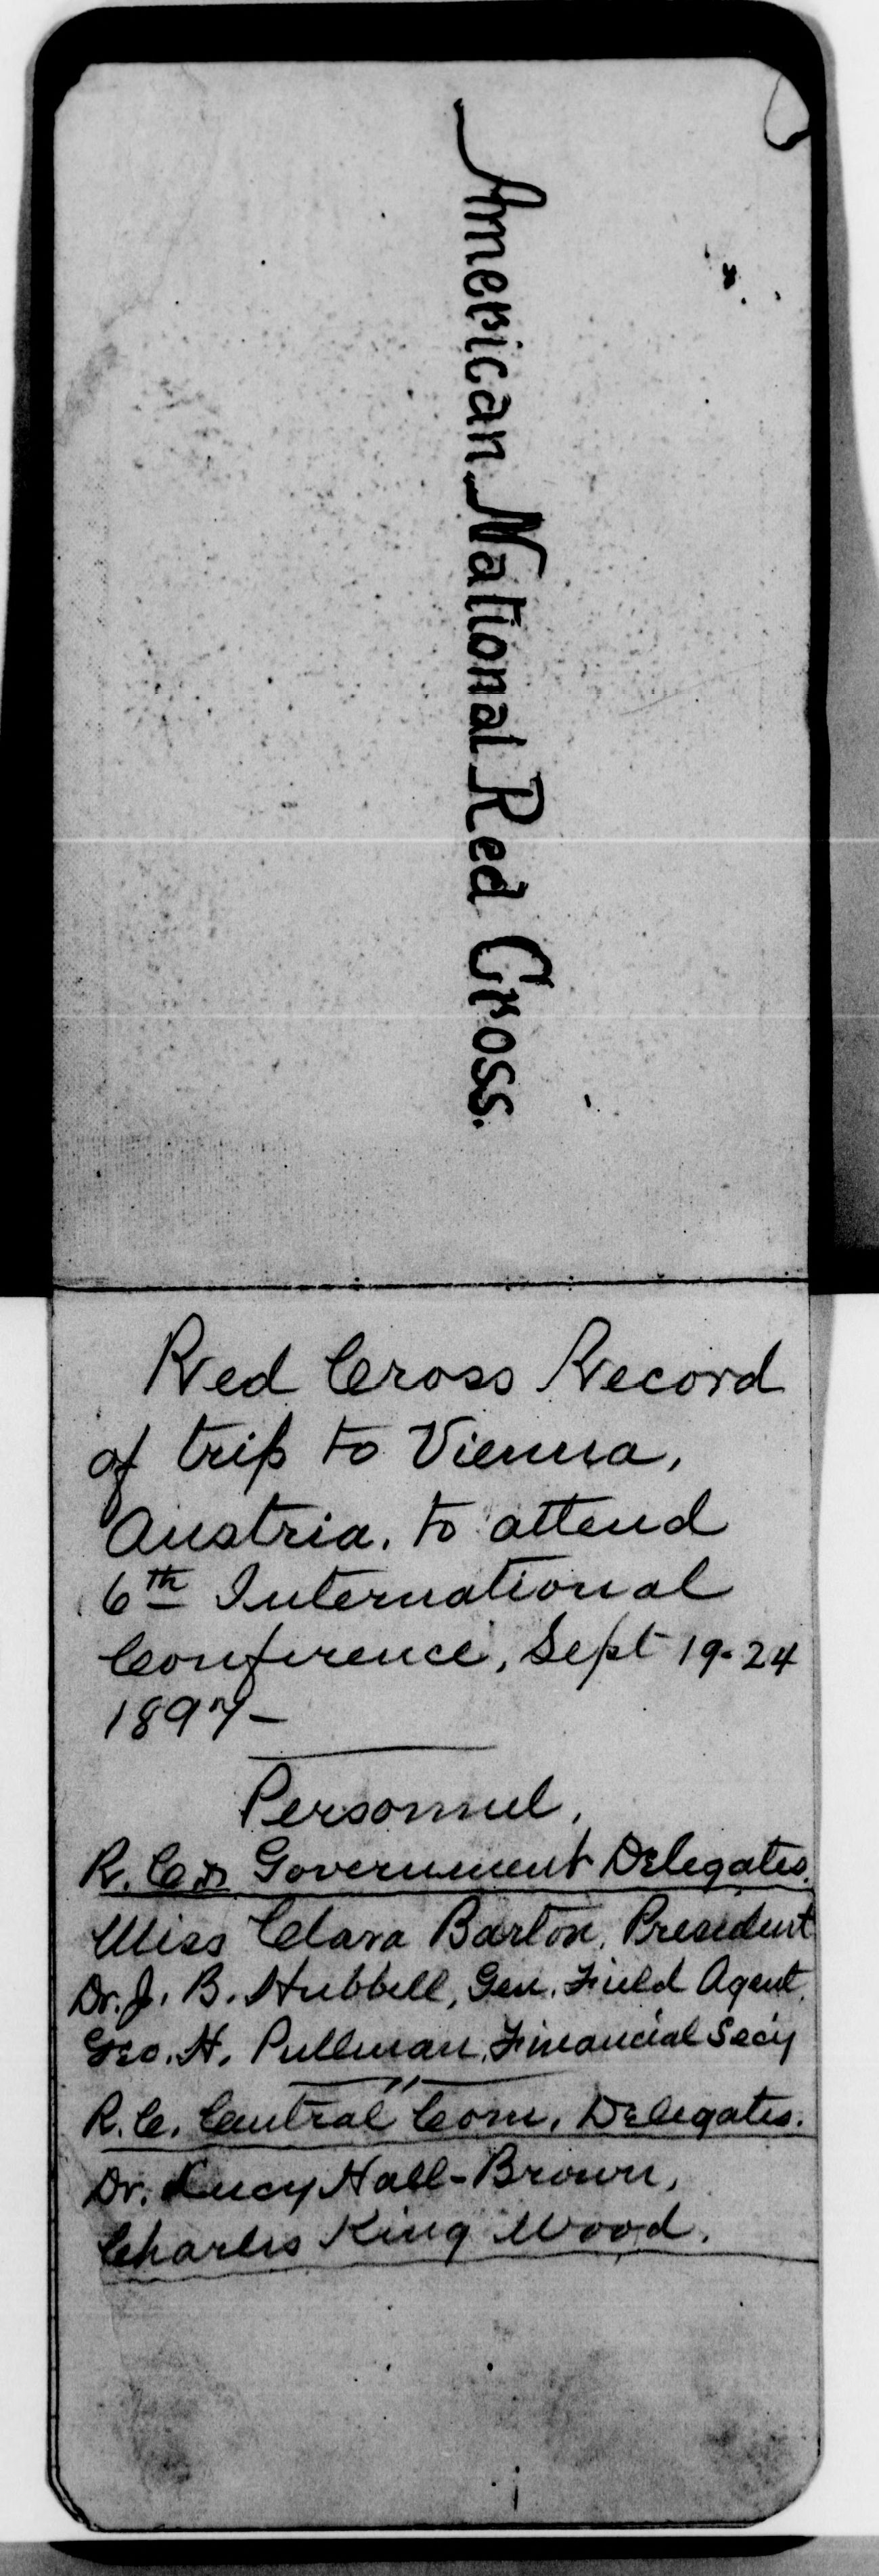 American National Red Cross.
Red Cross Record
of trip to Vienna,
Austria. to attend
6th International
Conference, Sept 19-24
1897-
Personnel,
R. C. Government Delegates.
Miss Clara Barton, President
Dr. J. B. Hubbell, Gen. Field Agent.
Geo. H. Pullman, Financial Secy
R. C. Central Com. Delegates.
Dr. Lucy Hall-Brown,
Charles King Wood.